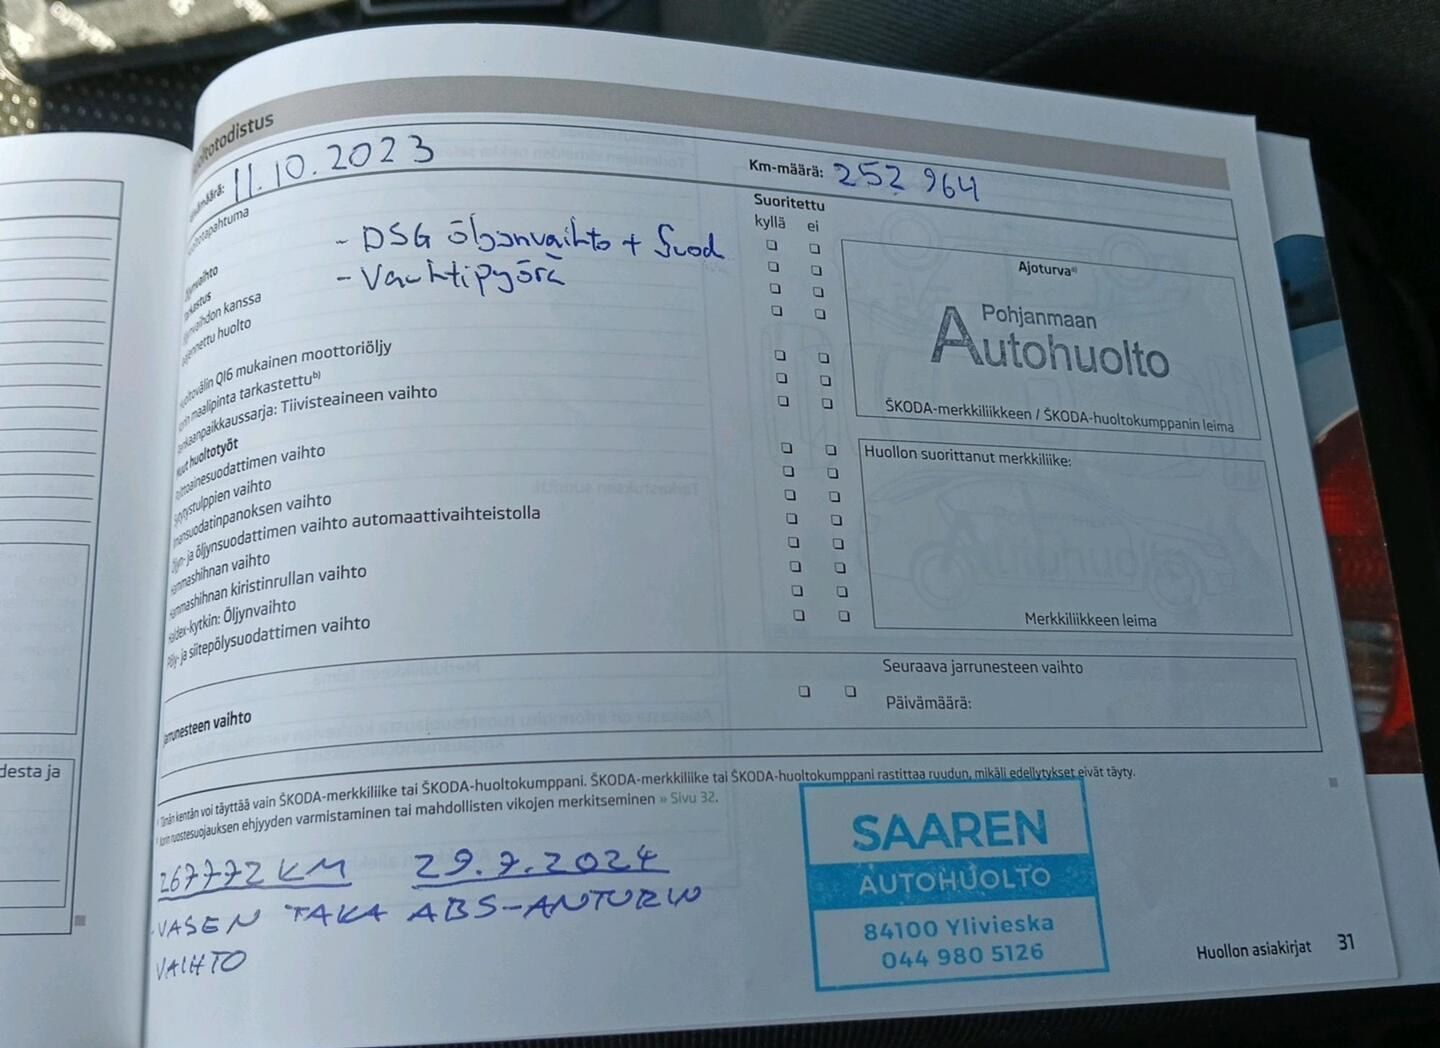 Huoltotodistus
Päivämäärä: 11.10.2023
Km-määrä: 252 964
Huoltotapahtuma
Suoritettu
kyllä ei
- DSG öljynvaihto + Suod
- Vauhtipyörä
Öljynvaihto
Tarkastus
Öljynvaihdon kanssa
Laajennettu huolto
Huoltovälin QI6 mukainen moottoriöljy
Korin maalipinta tarkastettu b)
Renkaanpaikkaussarja: Tiivisteaineen vaihto
Muut huoltotyöt
Polttoainesuodattimen vaihto
Sytytystulppien vaihto
Ilmansuodatinpanoksen vaihto
Öljyn- ja öljynsuodattimen vaihto automaattivaihteistolla
Hammashihnan vaihto
Hammashihnan kiristinrullan vaihto
Haldex-kytkin: Öljynvaihto
Pöly- ja siitepölysuodattimen vaihto
Ajoturva a)
Pohjanmaan
Autohuolto
ŠKODA-merkkiliikkeen / ŠKODA-huoltokumppanin leima
Huollon suorittanut merkkiliike:
Merkkiliikkeen leima
Jarrunesteen vaihto
Seuraava jarrunesteen vaihto
Päivämäärä:
Tämän kentän voi täyttää vain ŠKODA-merkkiliike tai ŠKODA-huoltokumppani. ŠKODA-merkkiliike tai ŠKODA-huoltokumppani rastittaa ruudun, mikäli edellytykset eivät täyty.
Korin ruostesuojauksen ehjyyden varmistaminen tai mahdollisten vikojen merkitseminen » Sivu 32.
267772 KM 29.7.2024
- VASEN TAKA ABS-ANTURIN
VAIHTO
SAAREN
AUTOHUOLTO
84100 Ylivieska
044 980 5126
Huollon asiakirjat 31
desta ja